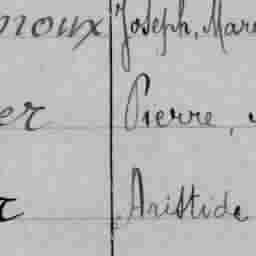 noux Joseph, Mar
er Pierre,
r Aristide